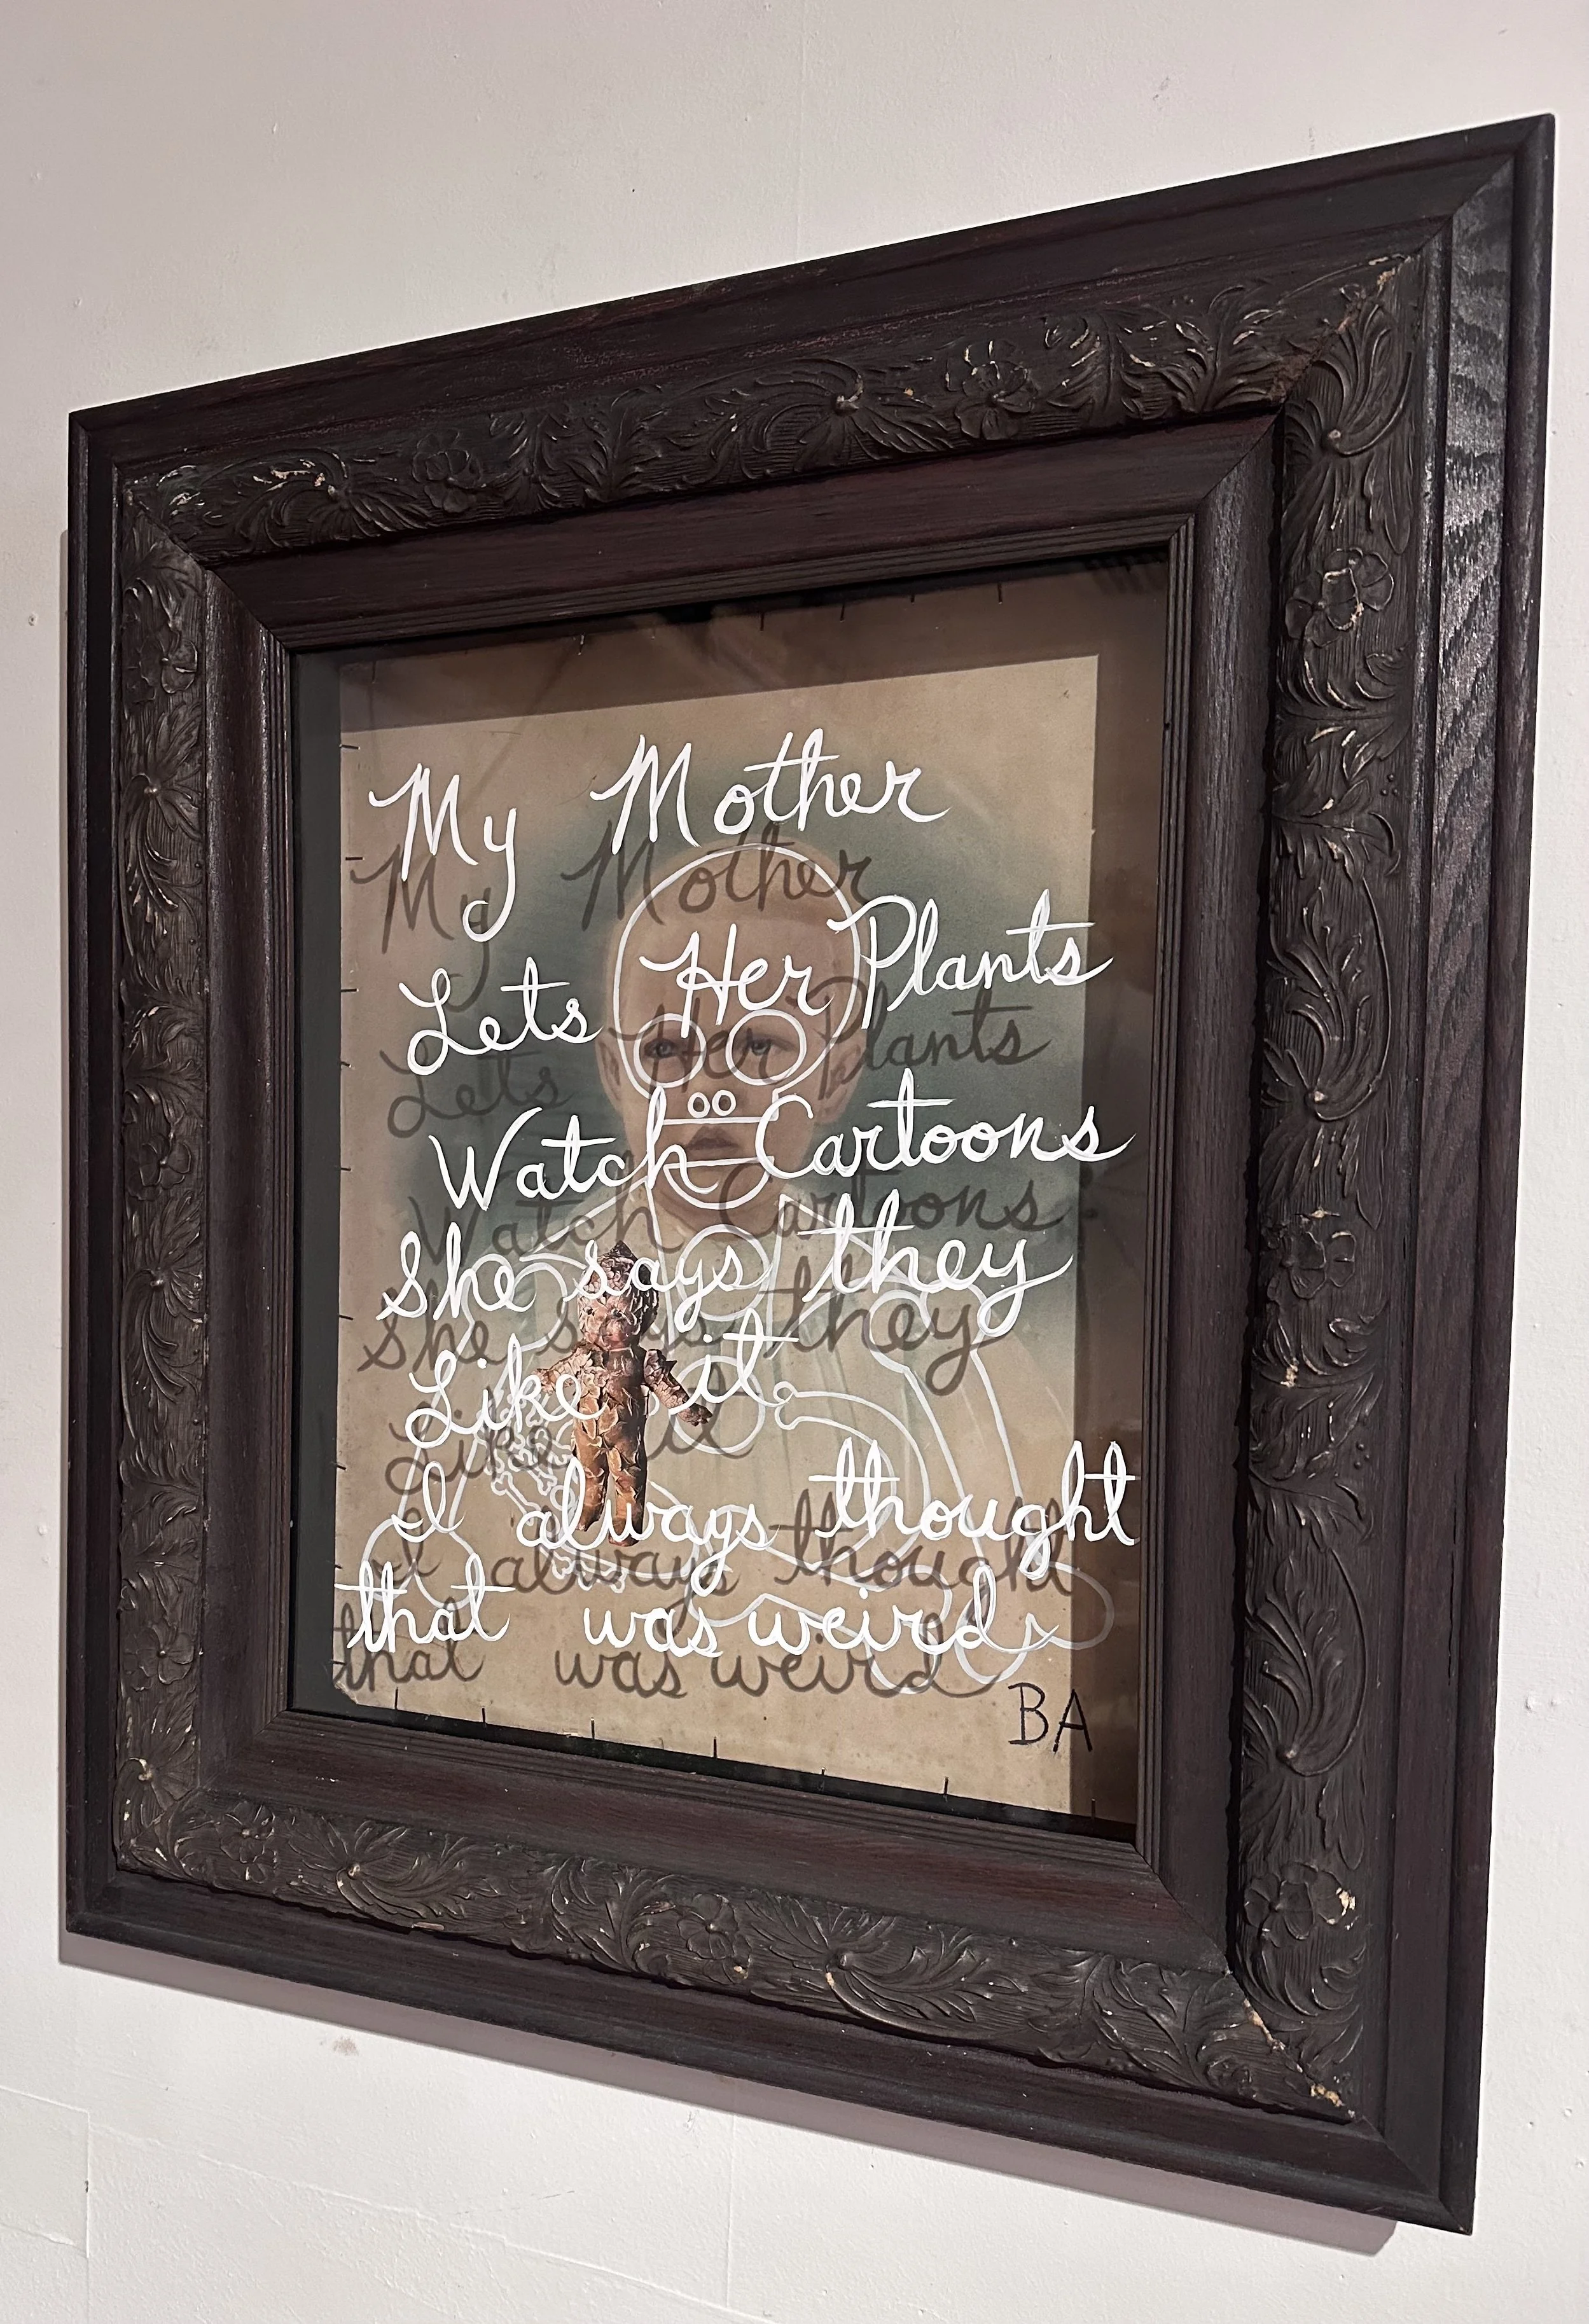 My Mother
Lets Her Plants
Watch Cartoons
She says they
Like it.
I always thought
that was weird.
BA